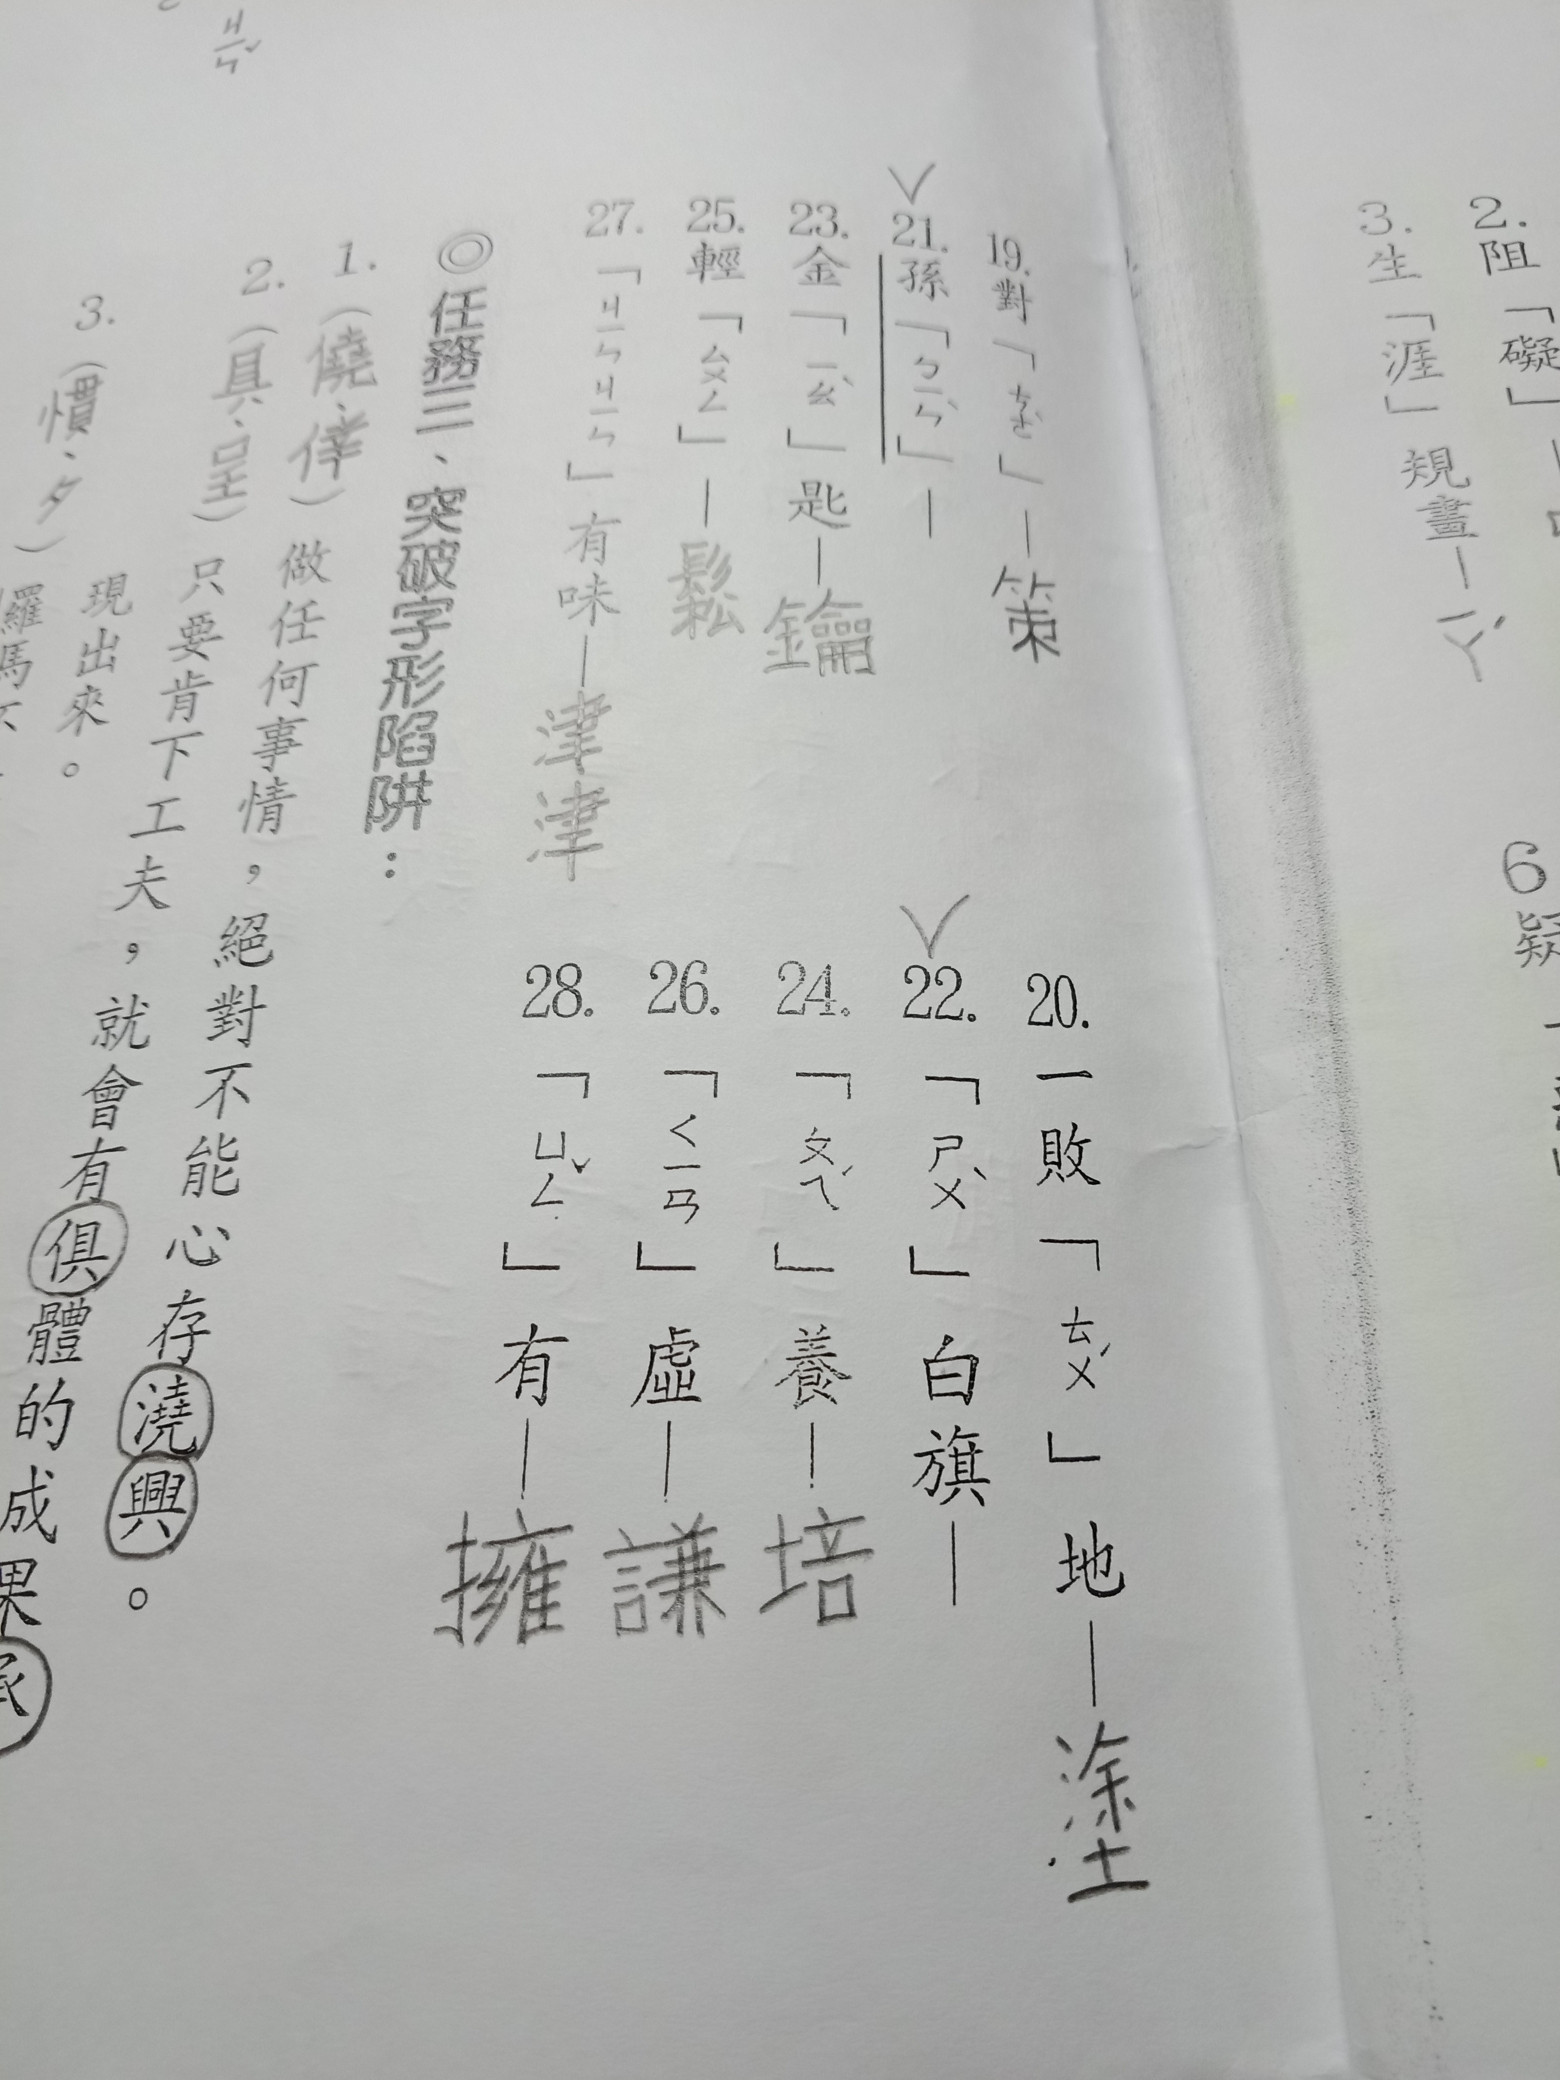 2. 阻「礙」
3. 生「涯」規畫—ㄧㄚˊ
6
19. 對「ㄘㄜˋ」—策
20. 一敗「ㄊㄨˊ」地—塗
21. 孫「ㄅㄧㄣˋ」—
22. 「ㄕㄨˋ」白旗—
23. 金「ㄧㄠˋ」匙—鑰
24. 「ㄆㄟˊ」養—培
25. 輕「ㄙㄨㄥ」—鬆
26. 「ㄑㄧㄢ」虛—謙
27. 「ㄐㄧㄣㄐㄧㄣ」有味—津津
28. 「ㄩㄥˇ」有—擁
◎任務三、突破字形陷阱：
1. (僥、倖) 做任何事情，絕對不能心存澆興。
2. (具、呈) 只要肯下工夫，就會有俱體的成果
現出來。
3. (慣、夕)